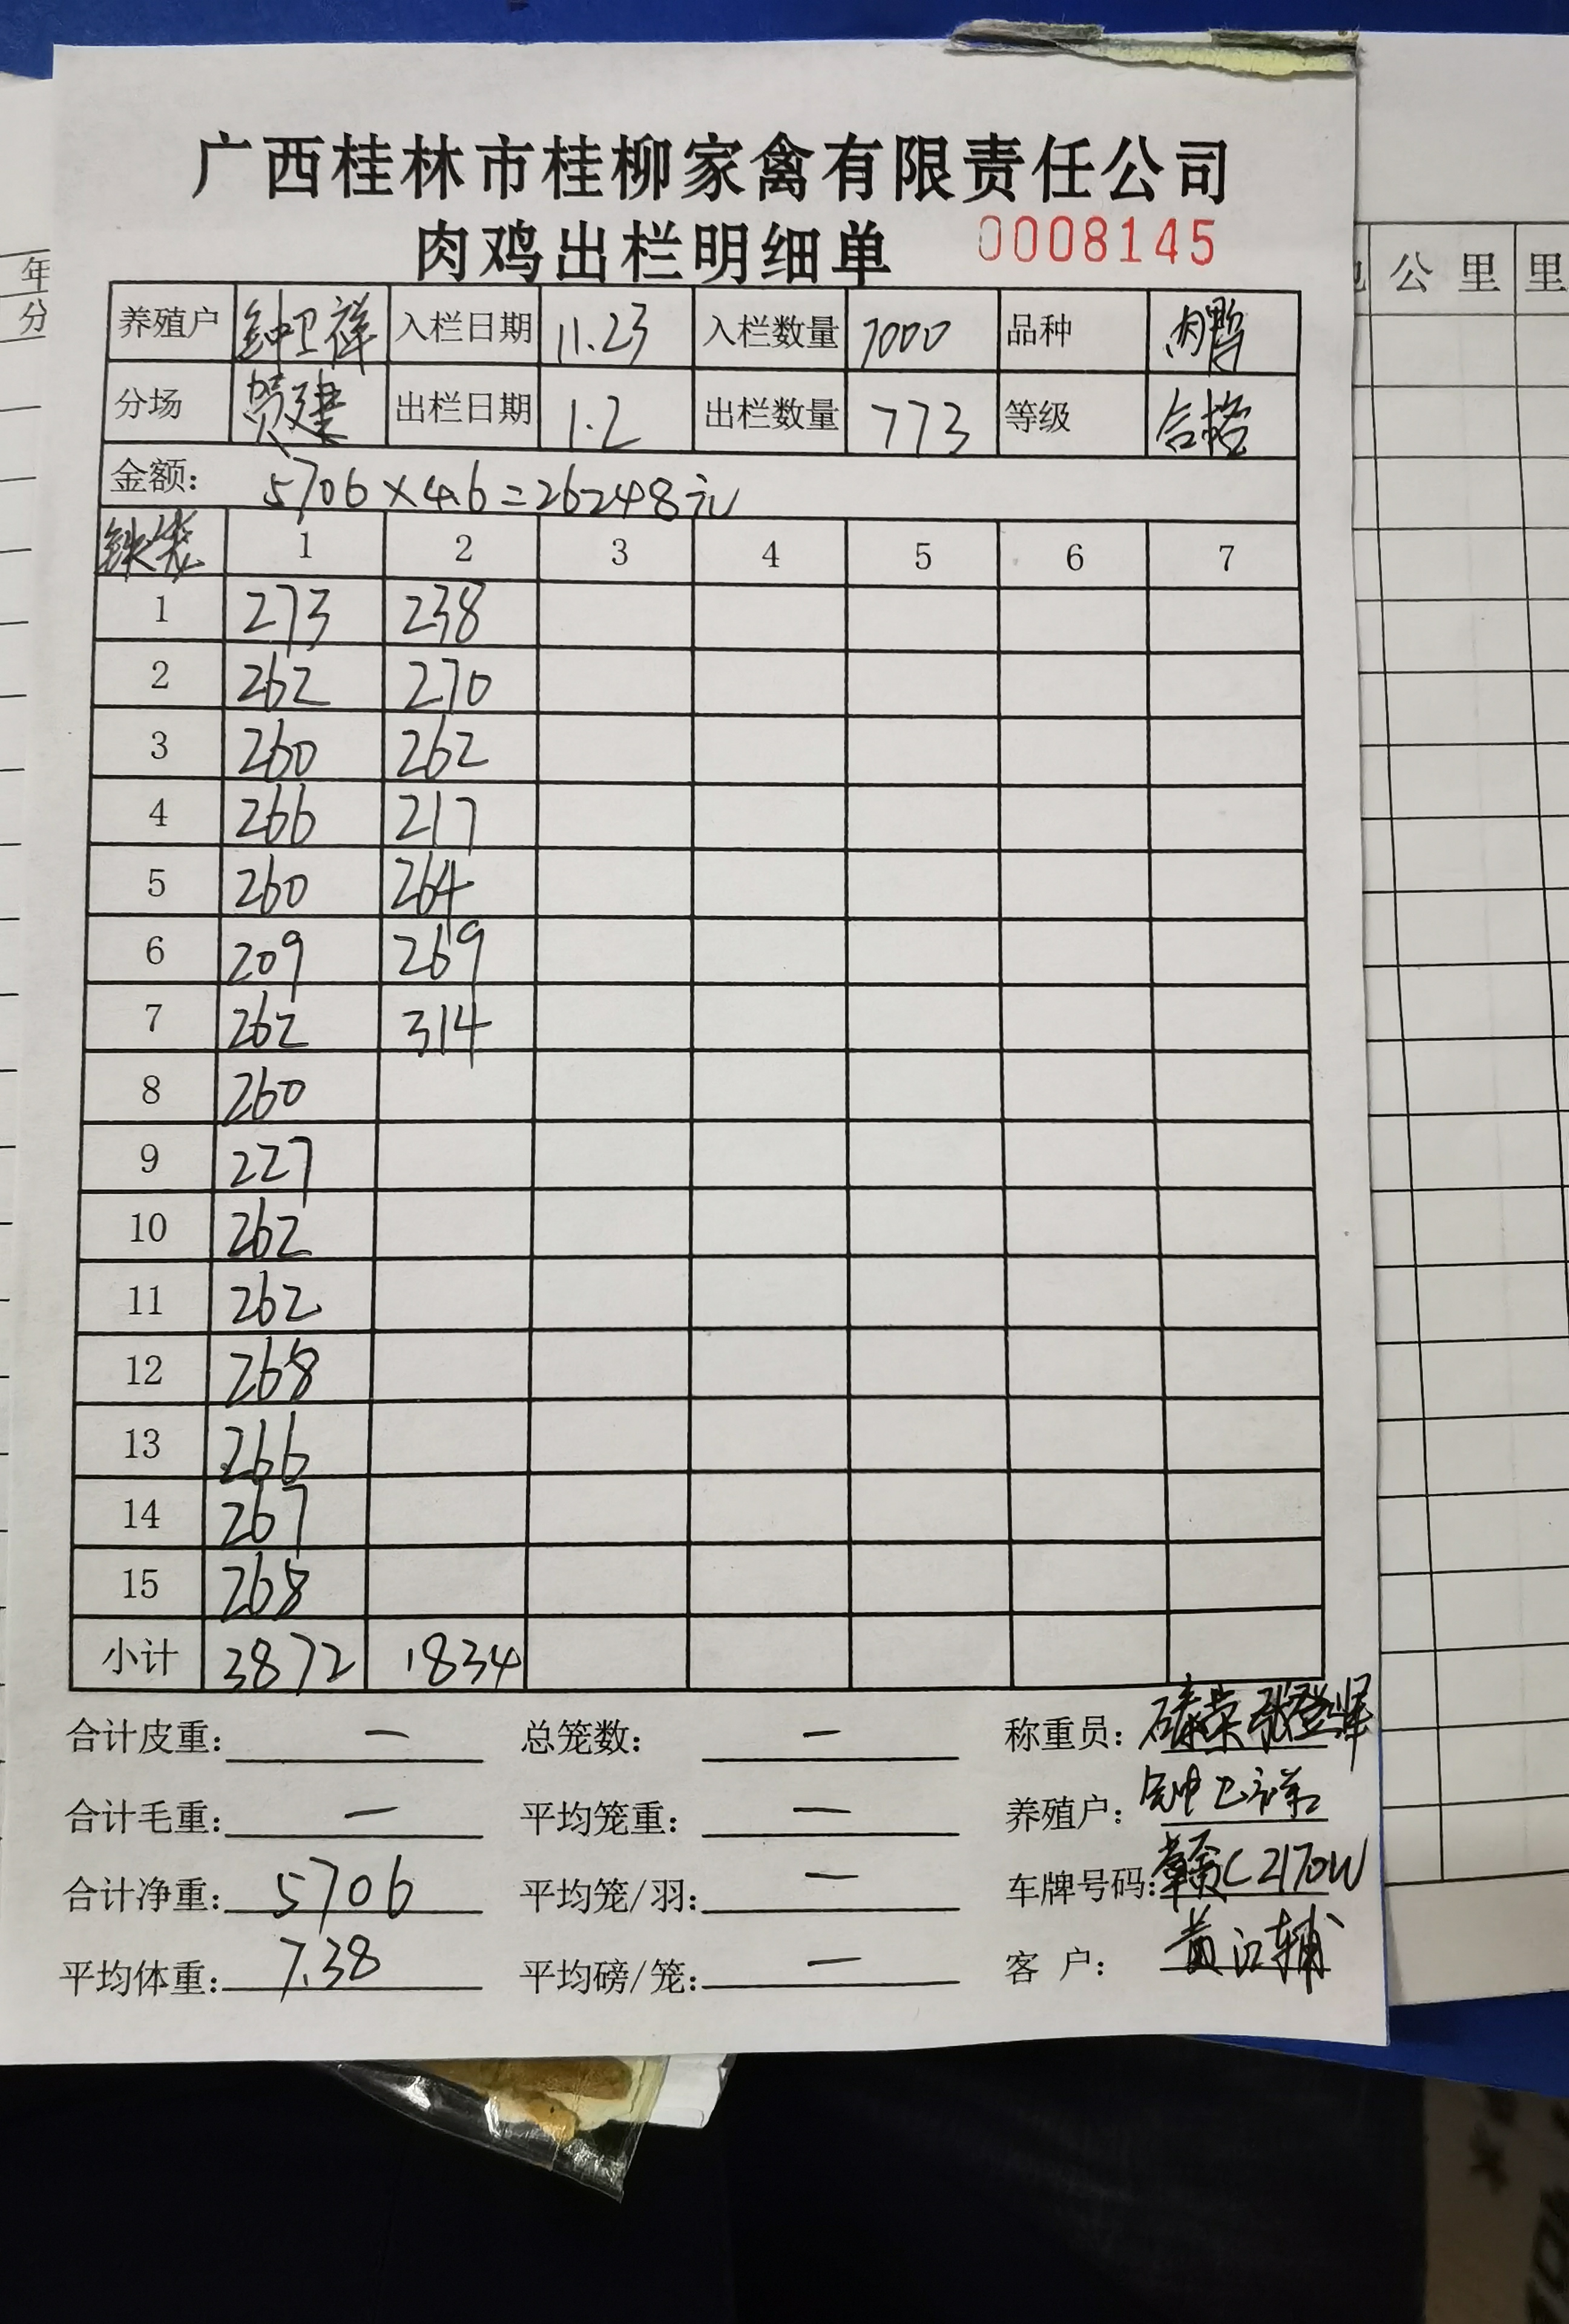 广西桂林市桂柳家禽有限责任公司
肉鸡出栏明细单 0008145
养殖户 钟卫祥 入栏日期 11.23 入栏数量 7000 品种 肉鸭
分场 贺建 出栏日期 1.2 出栏数量 773 等级 合格
金额: 5706×4.6=26248元
1 2 3 4 5 6 7
1 273 238
2 262 270
3 260 262
4 266 217
5 260 264
6 209 269
7 262 314
8 260
9 227
10 262
11 262
12 268
13 266
14 267
15 268
小计 3872 1834
合计皮重: — 总笼数: — 称重员:
合计毛重: — 平均笼重: — 养殖户: 钟卫祥
合计净重: 5706 平均笼/羽: — 车牌号码: 赣C2170W
平均体重: 7.38 平均磅/笼: — 客户: 黄江辅
年
分
公里 里